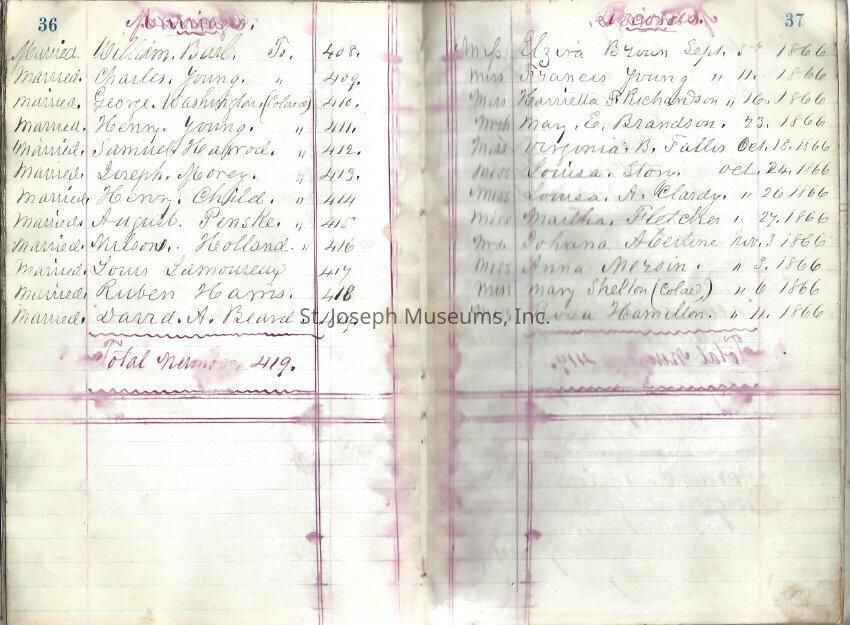 36
Marriages.
Married. William. Burl. To. 408.
Married. Charles. Young. " 409.
married. George. Washington. (Colored) 410.
Married. Henry. Young. " 411.
Married. Samuel. " 412.
Married. Joseph. Morey. " 413.
Married. Henry. Child. " 414
Married. August. Penske. " 415
Married. Nelson. Holland. " 416
Married. Louis Lamoureux 417
Married. Ruben Hams. 418
Married. David. A. Beard
Total Number 419.
37
Miss Elzira Brown Sept. 1866
Miss Francis Young " 11. 1866
Miss Harrietta Richardson " 16. 1866
Mrs May. E. Brandson. 23. 1866
Miss Virginia. B. Fallis Oct. 18. 1866
Miss Louisa. Story. Oct. 24. 1866
Miss Louisa. A. Clardy. " 26 1866
Miss Martha. Fletcher " 27. 1866
Mrs Johana Abertine Nov. 3 1866
Miss Anna Mersin. " 3. 1866
Miss Mary Shelton (Colored) " 6 1866
Rosa Hamilton. " 11. 1866
St. Joseph Museums, Inc.